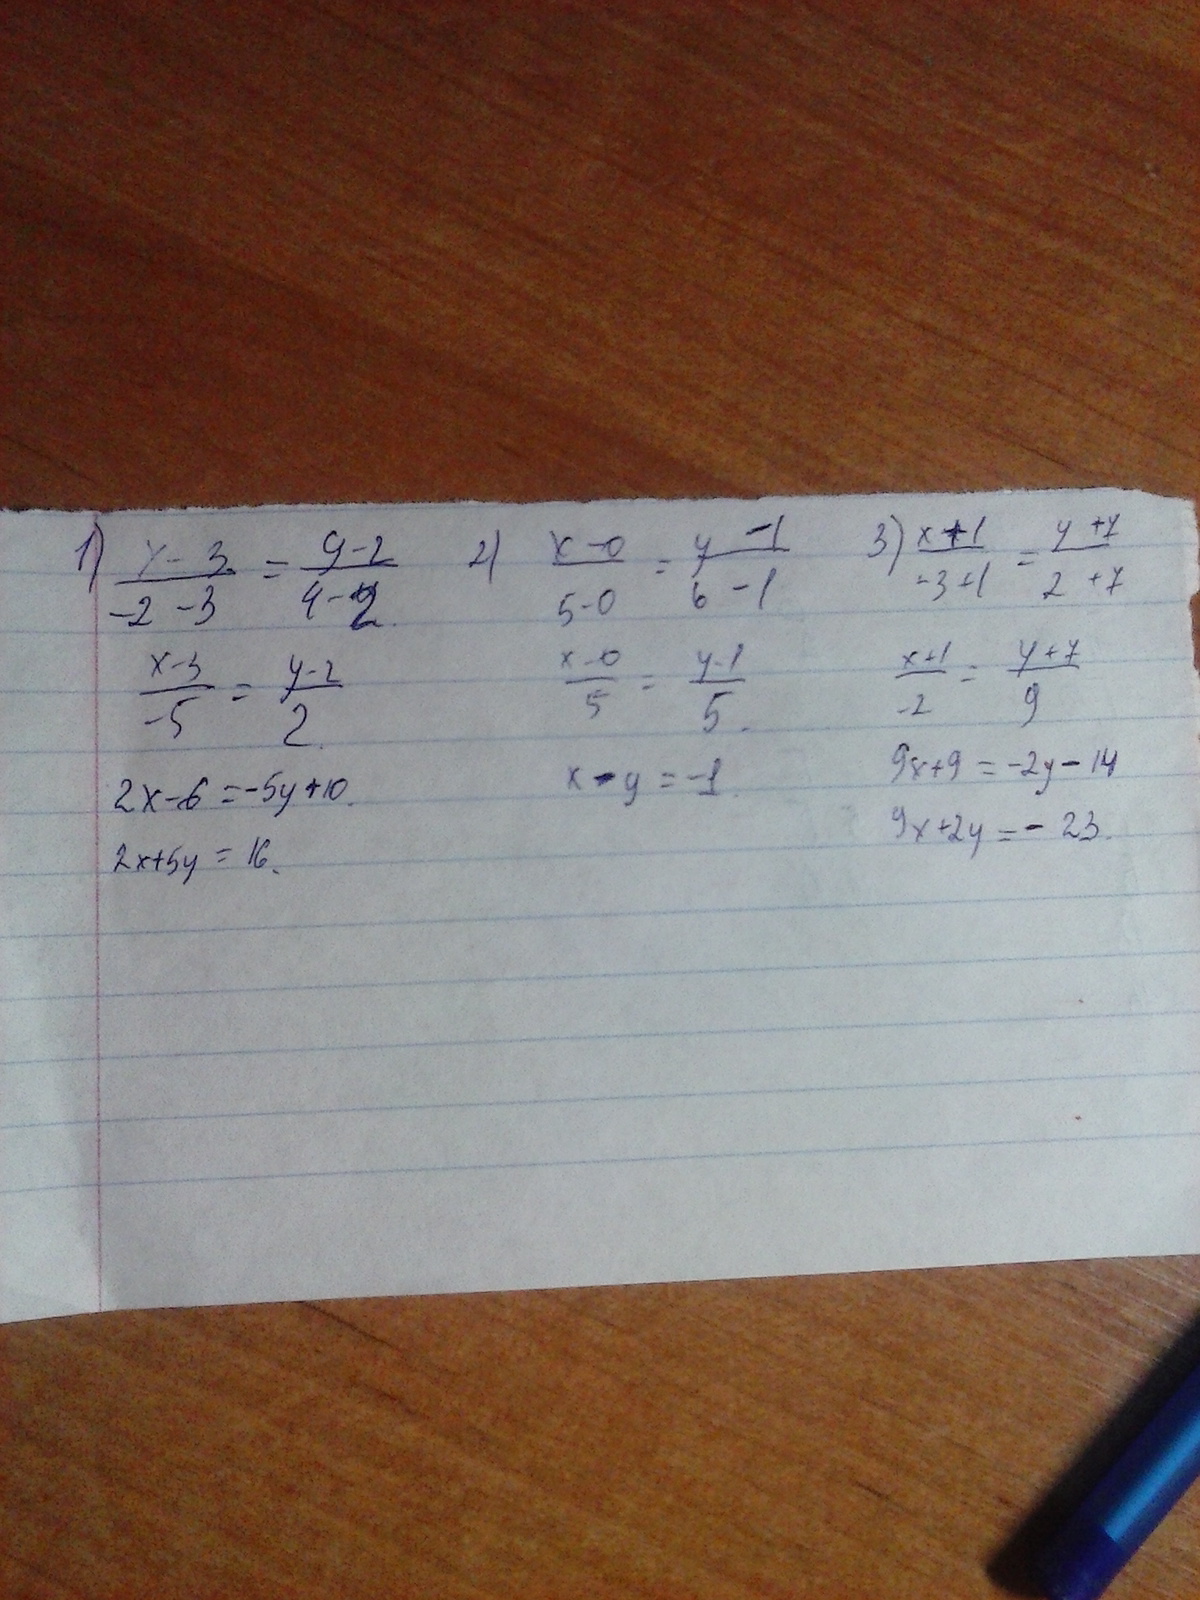 1) x-3 / -2-3 = y-2 / 4-2.
x-3 / -5 = y-2 / 2.
2x-6=-5y+10.
2x+5y=16.
2) x-0 / 5-0 = y-1 / 6-1
x-0 / 5 = y-1 / 5.
x-y=-1.
3) x+1 / -3+1 = y+7 / 2+7
x+1 / -2 = y+7 / 9
9x+9=-2y-14
9x+2y=-23.